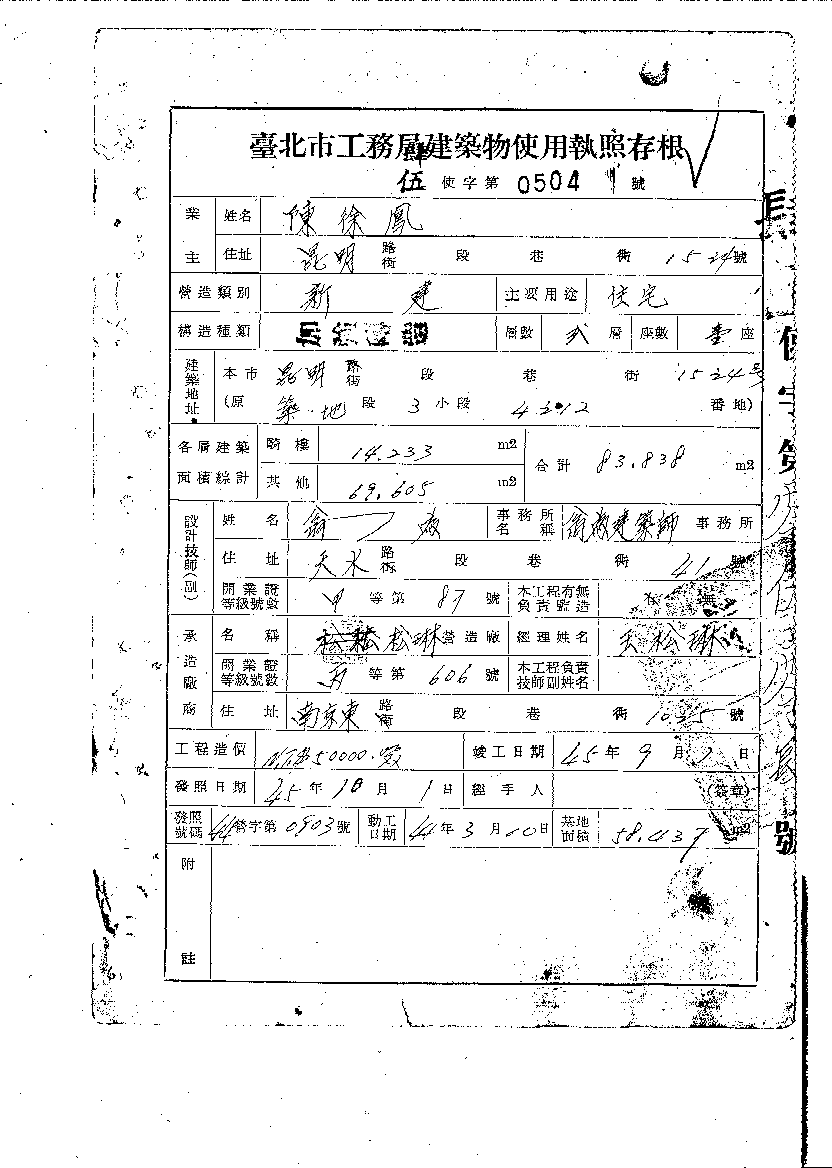 臺北市工務局建築物使用執照存根
伍 使字第 0504 號
業主 姓名 陳徐鳳
住址 昆明 路街 段 巷 衖 152-4號
營造類別 新建 主要用途 住宅
構造種類 層數 弍 層 座數 壹 座
建築地址 本市 昆明 路街 段 巷 衖 152-4號
(原 築地 段 3 小段 42-12 番地)
各層建築面積綜計 騎樓 14.233 m2 合計 83.838 m2
其他 69.605 m2
設計技師(副) 姓名 事務所名稱 建築師 事務所
住址 天水 路街 段 巷 衖 41 號
開業證等級號數 甲 等第 87 號 本工程有無負責監造
承造廠商 名稱 松琳 營造廠 經理姓名 松琳
開業證等級號數 等第 606 號 本工程負責技師副姓名
住址 南京東 路街 段 巷 衖 號
工程造價 NT$50000. 竣工日期 45年9月1日
發照日期 45年10月1日 經手人 (簽章)
發照號碼 44營字第0903號 動工日期 44年3月10日 基地面積 m2
附註
使字第
號